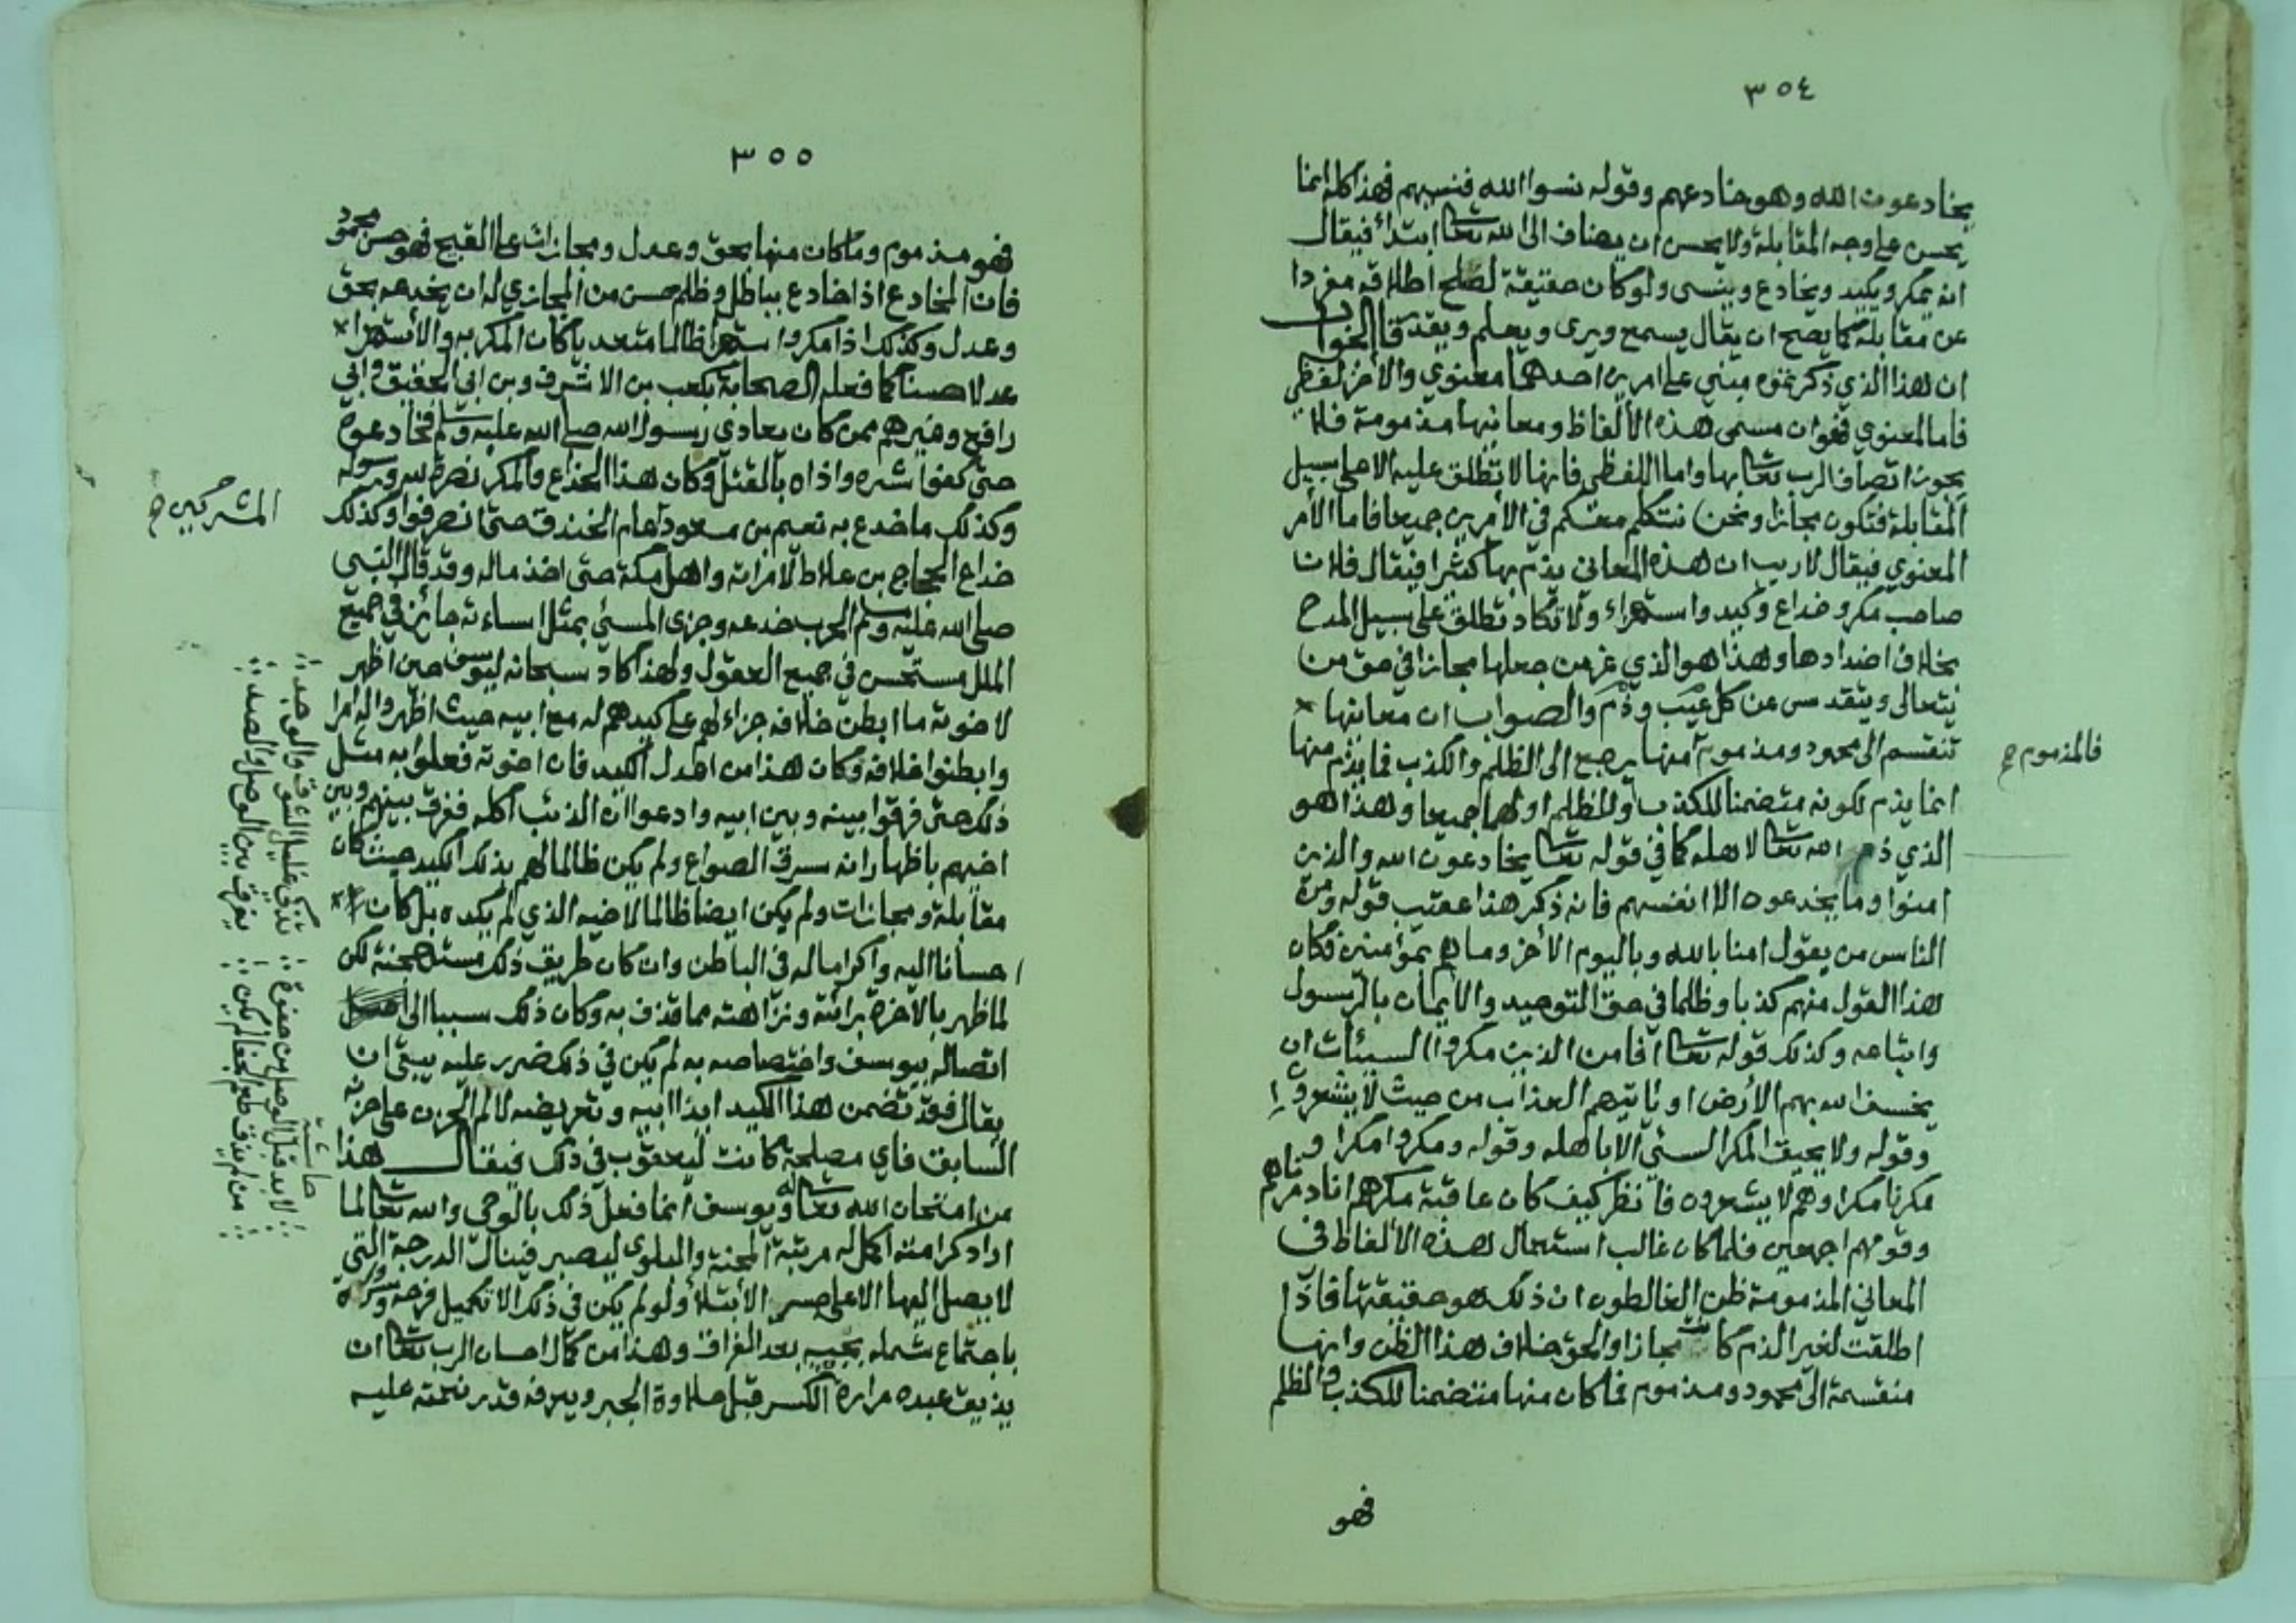 ٣٥٤
يخادعون الله وهو خادعهم وقوله نسوا الله فنسيهم فهذا كله انما
يحسن على وجه المقابلة ولا يحسن ان يضاف الى الله تعالى ابتداً فيقال
انه يمكر ويكيد ويخادع وينسى ولو كان حقيقة لصلح اطلاقه مفردا
عن مقابله كما يصح ان يقال يسمع ويرى ويعلم ويقدر فالجواب
ان هذا الذي ذكرتموه مبني على امرين احدهما معنوي والاخر لفظي
فاما المعنوي فهو ان مسمى هذه الألفاظ ومعانيها مذمومة فلا
يجوز اتصاف الرب تعالى بها واما اللفظي فانها لا تطلق عليه الا على سبيل
المقابلة فتكون مجازا ونحن نتكلم معكم في الأمرين جميعا فاما الأمر
المعنوي فيقال لا ريب ان هذه المعاني يذم بها كثيرا فيقال فلان
صاحب مكر وخداع وكيد واستهزاء ولا تكاد تطلق على سبيل المدح
بخلاف اضدادها وهذا هو الذي غر من جعلها مجازا في حق من
يتعالى ويتقدس عن كل عيب وذم والصواب ان معانيها
تنقسم الى محمود ومذموم منها يرجع الى الظلم والكذب فما يذم منها
فالمذموم صح
انما يذم لكونه متضمنا للكذب او للظلم او لهما جميعا وهذا هو
الذي ذم الله تعالى لاهله كما في قوله تعالى يخادعون الله والذين
امنوا وما يخدعون الا انفسهم فانه ذكر هذا عقيب قوله ومن
الناس من يقول امنا بالله وباليوم الأخر وما هم بمؤمنين فكان
هذا القول منهم كذبا وظلما في حق التوحيد والايمان بالرسول
واتباعه وكذلك قوله تعالى افامن الذين مكروا السيئات ان
يخسف الله بهم الأرض او يأتيهم العذاب من حيث لا يشعرون
وقوله ولا يحيق المكر السيئ الا باهله وقوله ومكروا مكرا و
مكرنا مكرا وهم لا يشعرون فانظر كيف كان عاقبة مكرهم انا دمرناهم
وقومهم اجمعين فلما كان غالب استعمال هذه الألفاظ في
المعاني المذمومة ظن الغالطون ان ذلك هو حقيقتها فاذا
اطلقت لغير الذم كانت مجازا والحق خلاف هذا الظن وانها
منقسمة الى محمود ومذموم فما كان منها متضمنا للكذب والظلم
فهو
٣٥٥
فهو مذموم وما كان منها بحق وعدل ومجازات على القبيح فهو حسن محمود
فان المخادع اذا خادع بباطل وظلم حسن من المجازي له ان يخدعه بحق
وعدل وكذلك اذا مكر واستهزا ظالما متعديا كان المكر به والأستهزا
عدلا حسنا كما فعله الصحابة بكعب بن الاشرف وبن ابي الحقيق وابي
رافع وغيرهم ممن كان يعادي رسول الله صلى الله عليه وسلم فخادعوه
حتى كفوا شره واذاه بالقتل وكان هذا الخداع والمكر نصرة لله ورسوله
وكذلك ما خدع به نعيم بن مسعود عام الخندق حتى انصرفوا وكذلك
المشركين صح
خداع الحجاج بن علاط لامراته واهل مكة حتى اخذ ماله وقد قال النبي
صلى الله عليه وسلم الحرب خدعه وجزى المسيئ بمثل اساءته جائز في جميع
الملل مستحسن في جميع العقول ولهذا كاد سبحانه ليوسف حين اظهر
لاخوته ما ابطن خلافه جزاء لهم على كيدهم له مع ابيه حيث اظهروا له امرا
وابطنوا خلافه وكان هذا من اعدل الكيد فان اخوته فعلوا به مثل
ذلك حتى فرقوا بينه وبين ابيه وادعوا ان الذئب اكله ففرق بينهم وبين
اخيهم باظهار انه سرق الصواع ولم يكن ظالما لهم بذلك الكيد حيث كان
مقابلة ومجازات ولم يكن ايضا ظالما لاخيه الذي لم يكده بل كان
احسانا اليه واكراما له في الباطن وان كان طريق ذلك مستهجنة لكن
لما ظهر بالآخرة برائته ونزاهته مما قذف به وكان ذلك سببا الى
اتصاله بيوسف واختصاصه به لم يكن في ذلك ضرر عليه يبقى ان
يقال فقد تضمن هذا الكيد ايذا ابيه وتعريضه لالم الحزن على حزنه
السابق فاي مصلحة كانت ليعقوب في ذلك فيقال هذا
من امتحان الله تعالى له ويوسف انما فعل ذلك بالوحي والله تعالى لما
اراد كرامته اكمل له مرتبة المحنة والبلوى ليصبر فينال الدرجة التي
لا يصل اليها الا على حسب الأبتلاء ولو لم يكن في ذلك الا تكميل فرحه وسروره
باجتماع شمله بحبيبه بعد الفراق وهذا من كمال احسان الرب تعالى ان
يذيق عبده مرارة الكسر قبل حلاوة الجبر ويعرفه قدر نعمته عليه
حاشية
لا بد قبل الوصل من جفوة تذكى غليل الشوق والوجد
من لم يذق طعم الجفا لم يكن يفرق بين الوصل والصد